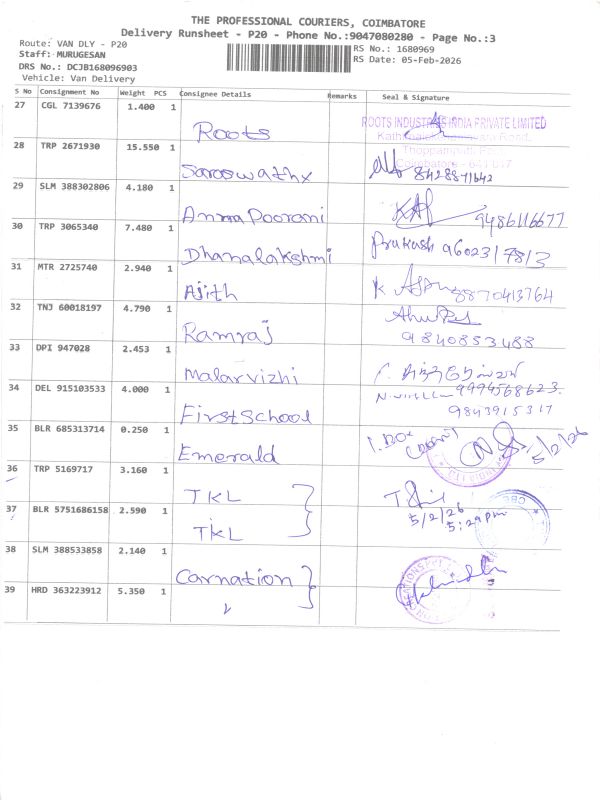 THE PROFESSIONAL COURIERS, COIMBATORE
Delivery Runsheet - P20 - Phone No.:9047080280 - Page No.:3
Route: VAN DLY - P20
Staff: MURUGESAN
DRS No.: DCJB168096903
Vehicle: Van Delivery
RS No.: 1680969
RS Date: 05-Feb-2026
S No Consignment No Weight PCS Consignee Details Remarks Seal & Signature
27 CGL 7139676 1.400 1 Roots
ROOTS INDUSTRIES INDIA PRIVATE LIMITED
Thoppampatti
Coimbatore - 641 017
28 TRP 2671930 15.550 1 Saraswathx 8428871642
29 SLM 388302806 4.180 1 AnnaPoorani 9486116677
30 TRP 3065340 7.480 1 Dhanalakshmi Prakash 9602317813
31 MTR 2725740 2.940 1 Ajith K 8870413764
32 TNJ 60018197 4.790 1 Ramraj 9840853488
33 DPI 947028 2.453 1 Malarvizhi 9994568623
34 DEL 915103533 4.000 1 FirstSchool 9843915317
35 BLR 685313714 0.250 1 Emerald 5/2/26
36 TRP 5169717 3.160 1 TKL
5/2/26
5:29pm
37 BLR 5751686158 2.590 1 TKL
38 SLM 388533858 2.140 1 Carnation
39 HRD 363223912 5.350 1